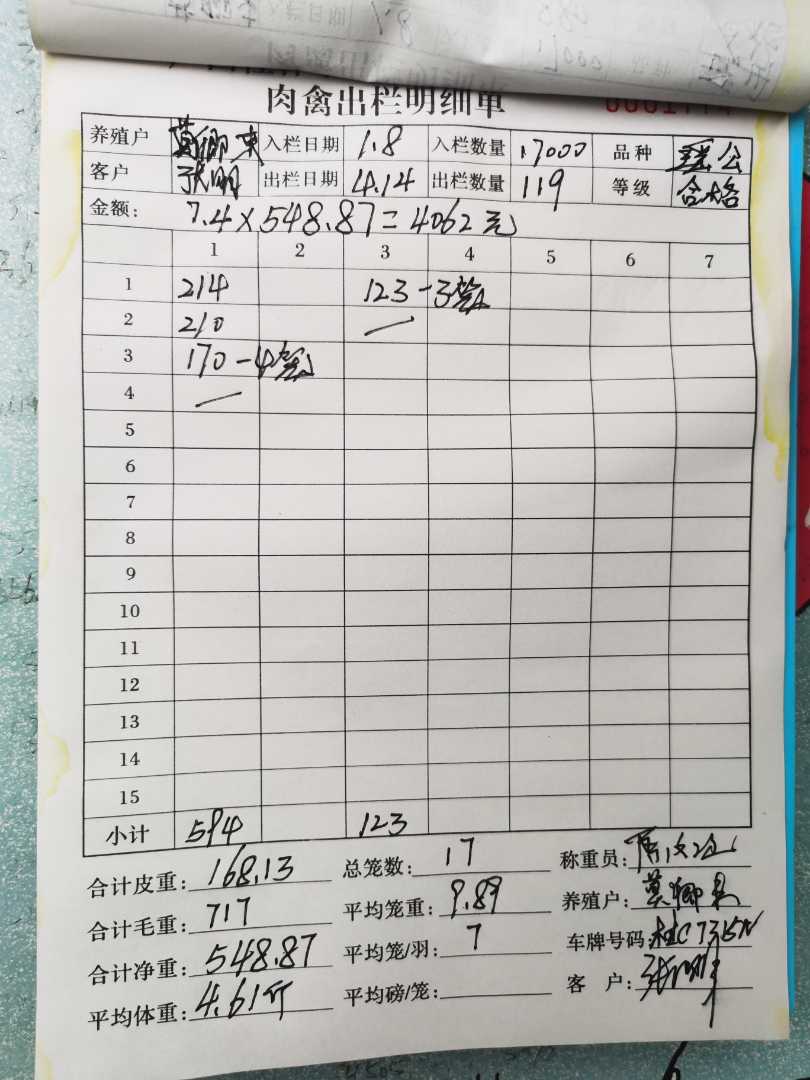 肉禽出栏明细单
养殖户 莫卿东 入栏日期 1.8 入栏数量 17000 品种
客户 张明 出栏日期 4.14 出栏数量 119 等级 合格
金额: 7.4×548.87=4062元
1 2 3 4 5 6 7
1 214 123-3笼
2 210
3 170-4笼
4
5
6
7
8
9
10
11
12
13
14
15
小计 594 123
合计皮重: 168.13 总笼数: 17 称重员:
合计毛重: 717 平均笼重: 9.89 养殖户: 莫卿东
合计净重: 548.87 平均笼/羽: 7 车牌号码: 桂C7315N
平均体重: 4.61斤 平均磅/笼: 客 户: 张明